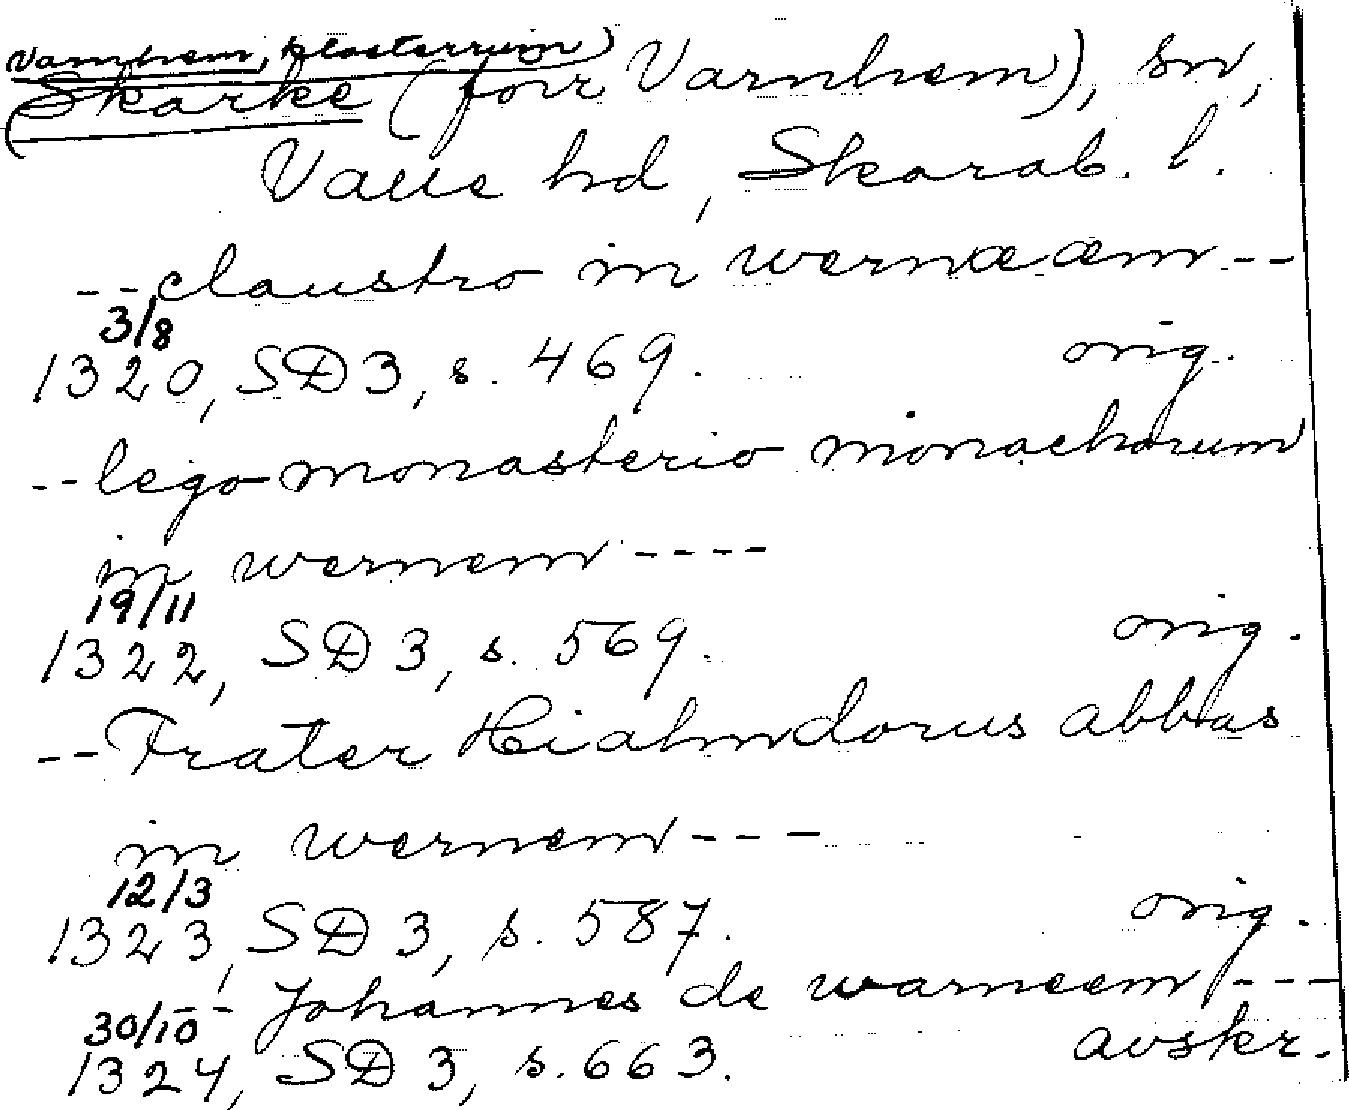 Varnhem, klosterruin)
(Skarke (förr Varnhem), sn,
Valle hd, Skarab. l.
-- claustro in wernæ æm --
3/8
1320, SD 3, s. 469. orig.
-- lego monasterio monachorum
in wernem ----
19/11
1322, SD 3, s. 569. orig.
-- Frater Hiahmdorus abbas
in wernem ---
12/3
1323, SD 3, s. 587. orig.
-- Johannes de warneem ---
30/10
1324, SD 3, s. 663. avskr.